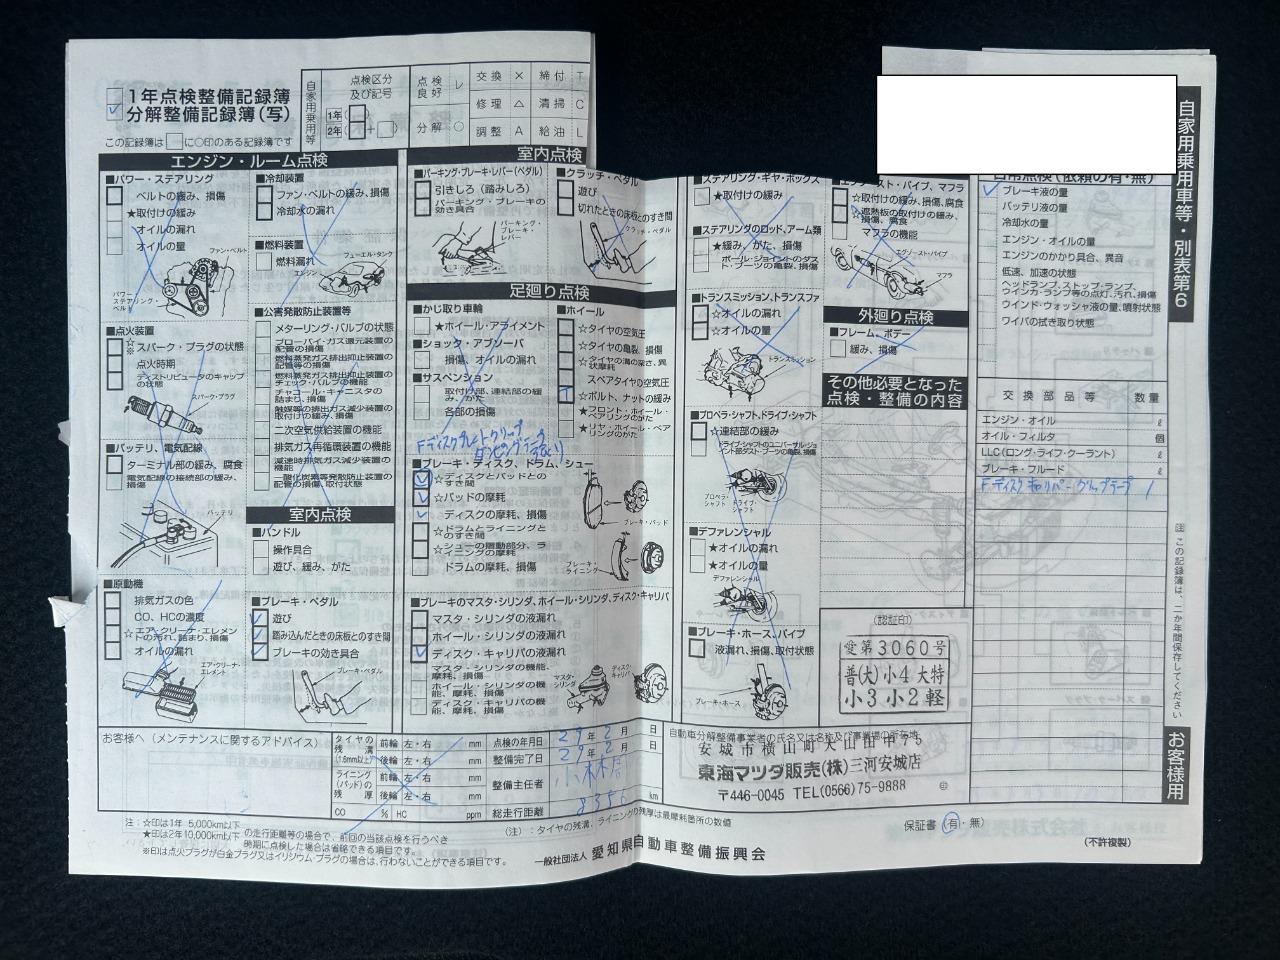 1年点検整備記録簿
分解整備記録簿(写)
この記録簿は に○印のある記録簿です
自家用乗用等
点検区分及び記号
1年
2年
点検良好 レ 交換 × 締付 T
修理 △ 清掃 C
分解 ○ 調整 A 給油 L
エンジン・ルーム点検
■パワー・ステアリング
ベルトの緩み、損傷
★取付けの緩み
オイルの漏れ
オイルの量
ファン・ベルト
パワーステアリング・ベルト
■点火装置
☆※スパーク・プラグの状態
点火時期
ディストリビュータのキャップの状態
スパーク・プラグ
■バッテリ、電気配線
ターミナル部の緩み、腐食
電気配線の接続部の緩み、損傷
バッテリ
■原動機
排気ガスの色
CO、HCの濃度
☆エア・クリーナ・エレメントの汚れ、詰まり、損傷
オイルの漏れ
エア・クリーナ・エレメント
■冷却装置
ファン・ベルトの緩み、損傷
冷却水の漏れ
■燃料装置
燃料漏れ
フューエル・タンク
エンジン
■公害発散防止装置等
メターリング・バルブの状態
ブローバイ・ガス還元装置の配管の損傷
燃料蒸発ガス排出抑止装置の配管等の損傷
燃料蒸発ガス排出抑止装置のチェック・バルブの機能
チャコール・キャニスタの詰まり、損傷
触媒等の排出ガス減少装置の取付けの緩み、損傷
二次空気供給装置の機能
排気ガス再循環装置の機能
減速時排気ガス減少装置の機能
一酸化炭素等発散防止装置の配管の損傷、取付状態
室内点検
■ハンドル
操作具合
遊び、緩み、がた
■ブレーキ・ペダル
遊び
踏み込んだときの床板とのすき間
ブレーキの効き具合
ブレーキ・ペダル
室内点検
■パーキング・ブレーキ・レバー(ペダル)
引きしろ(踏みしろ)
パーキング・ブレーキの効き具合
パーキング・ブレーキ・レバー
■クラッチ・ペダル
遊び
切れたときの床板とのすき間
クラッチ・ペダル
足廻り点検
■かじ取り車輪
★ホイール・アライメント
■ショック・アブソーバ
損傷、オイルの漏れ
■サスペンション
取付け部、連結部の緩み、がた
各部の損傷
■ホイール
☆タイヤの空気圧
☆タイヤの亀裂、損傷
☆タイヤの溝の深さ、異状摩耗
スペアタイヤの空気圧
☆ボルト、ナットの緩み
★フロント・ホイール・ベアリングのがた
★リヤ・ホイール・ベアリングのがた
■ブレーキ・ディスク、ドラム、シュー
☆ディスクとパッドとのすき間
☆パッドの摩耗
ディスクの摩耗、損傷
☆ドラムとライニングとのすき間
☆シューの摺動部分、ライニングの摩耗
ドラムの摩耗、損傷
ブレーキ・パッド
ブレーキ・ライニング
■ブレーキのマスタ・シリンダ、ホイール・シリンダ、ディスク・キャリパ
マスタ・シリンダの液漏れ
ホイール・シリンダの液漏れ
ディスク・キャリパの液漏れ
マスタ・シリンダの機能、摩耗、損傷
ホイール・シリンダの機能、摩耗、損傷
ディスク・キャリパの機能、摩耗、損傷
マスタ・シリンダ
ディスク・キャリパ
■ステアリング・ギヤ・ボックス
★取付けの緩み
■ステアリングのロッド、アーム類
★緩み、がた、損傷
ボール・ジョイントのダスト・ブーツの亀裂、損傷
■トランスミッション、トランスファ
☆オイルの漏れ
☆オイルの量
トランスミッション
■プロペラ・シャフト、ドライブ・シャフト
☆連結部の緩み
ドライブ・シャフトのユニバーサル・ジョイント部ダスト・ブーツの亀裂、損傷
プロペラ・シャフト
ドライブ・シャフト
■デファレンシャル
★オイルの漏れ
★オイルの量
デファレンシャル
■ブレーキ・ホース、パイプ
液漏れ、損傷、取付状態
ブレーキ・ホース
☆取付けの緩み、損傷、腐食
☆遮熱板の取付けの緩み、損傷、腐食
マフラの機能
エグゾースト・パイプ
マフラ
外廻り点検
■フレーム、ボデー
緩み、損傷
その他必要となった
点検・整備の内容
(認証印)
愛第3060号
普(大)小4大特
小3小2軽
日常点検(依頼の有・無)
ブレーキ液の量
バッテリ液の量
冷却水の量
エンジン・オイルの量
エンジンのかかり具合、異音
低速、加速の状態
ヘッドランプ、ストップ・ランプ、ウインカ・ランプ等の点灯、汚れ、損傷
ウインド・ウォッシャ液の量、噴射状態
ワイパの拭き取り状態
交換部品等 数量
エンジン・オイル ℓ
オイル・フィルタ 個
LLC(ロング・ライフ・クーラント) ℓ
ブレーキ・フルード ℓ
F.ディスクキャリパー・クリップテープ 1
自家用乗用車等・別表第6
注 この記録簿は、二か年間保存してください
お客様用
お客様へ(メンテナンスに関するアドバイス)
タイヤの残溝(1.6mm以上) 前輪 左・右 mm
後輪 左・右 mm
ライニング(パッド)の残厚 前輪 左・右 mm
後輪 左・右 mm
CO % HC ppm
点検の年月日 29年2月 日
整備完了日 29年2月 日
整備主任者
総走行距離 km
自動車分解整備事業者の氏名又は名称及び事業場の所在地
安城市横山町大山田中75
東海マツダ販売(株)三河安城店
〒446-0045 TEL(0566)75-9888
注:☆印は1年 5,000km以下
★印は2年10,000km以下 の走行距離等の場合で、前回の当該点検を行うべき時期に点検した場合は省略できる項目です。
※印は点火プラグが白金プラグ又はイリジウム・プラグの場合は、行わないことができる項目です。
(注):タイヤの残溝、ライニングの残厚は最摩耗箇所の数値
一般社団法人 愛知県自動車整備振興会
保証書(有・無)
(不許複製)